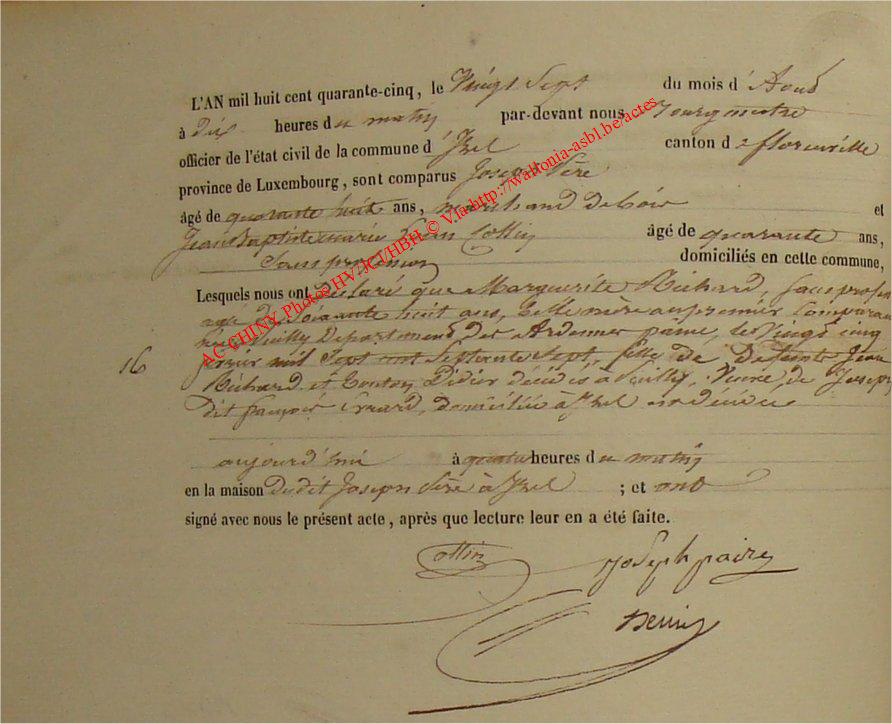 L'AN mil huit cent quarante-cinq, le Vingt Sept du mois d'Aout
à dix heures du matin par-devant nous Bourgmestre
officier de l'état civil de la commune d'Izel canton de florenville
province de Luxembourg, sont comparus Joseph
âgé de quarante huit ans, marchand de bois et
Jean Baptiste marie Collin âgé de quarante ans,
Sans profession domiciliés en cette commune,
Lesquels nous ont déclaré que Marguerite Richard, Sans profession
agé de Soixante huit ans, belle mère au premier Comparant
née à Département des Ardennes le Vingt cinq
mil Sept cent Septante Sept, fille de Jean
16
Richard et Didier décédés à veuve de Joseph
dit françois domiciliée à Izel est décédée
aujourd'hui à quatre heures du matin
en la maison dudit Joseph à Izel ; et ont
signé avec nous le présent acte, après que lecture leur en a été faite.
Collin
Joseph
AC CHINY Photos HV/JCT/HBH © V.la http://wallonia-asbl.be/actes